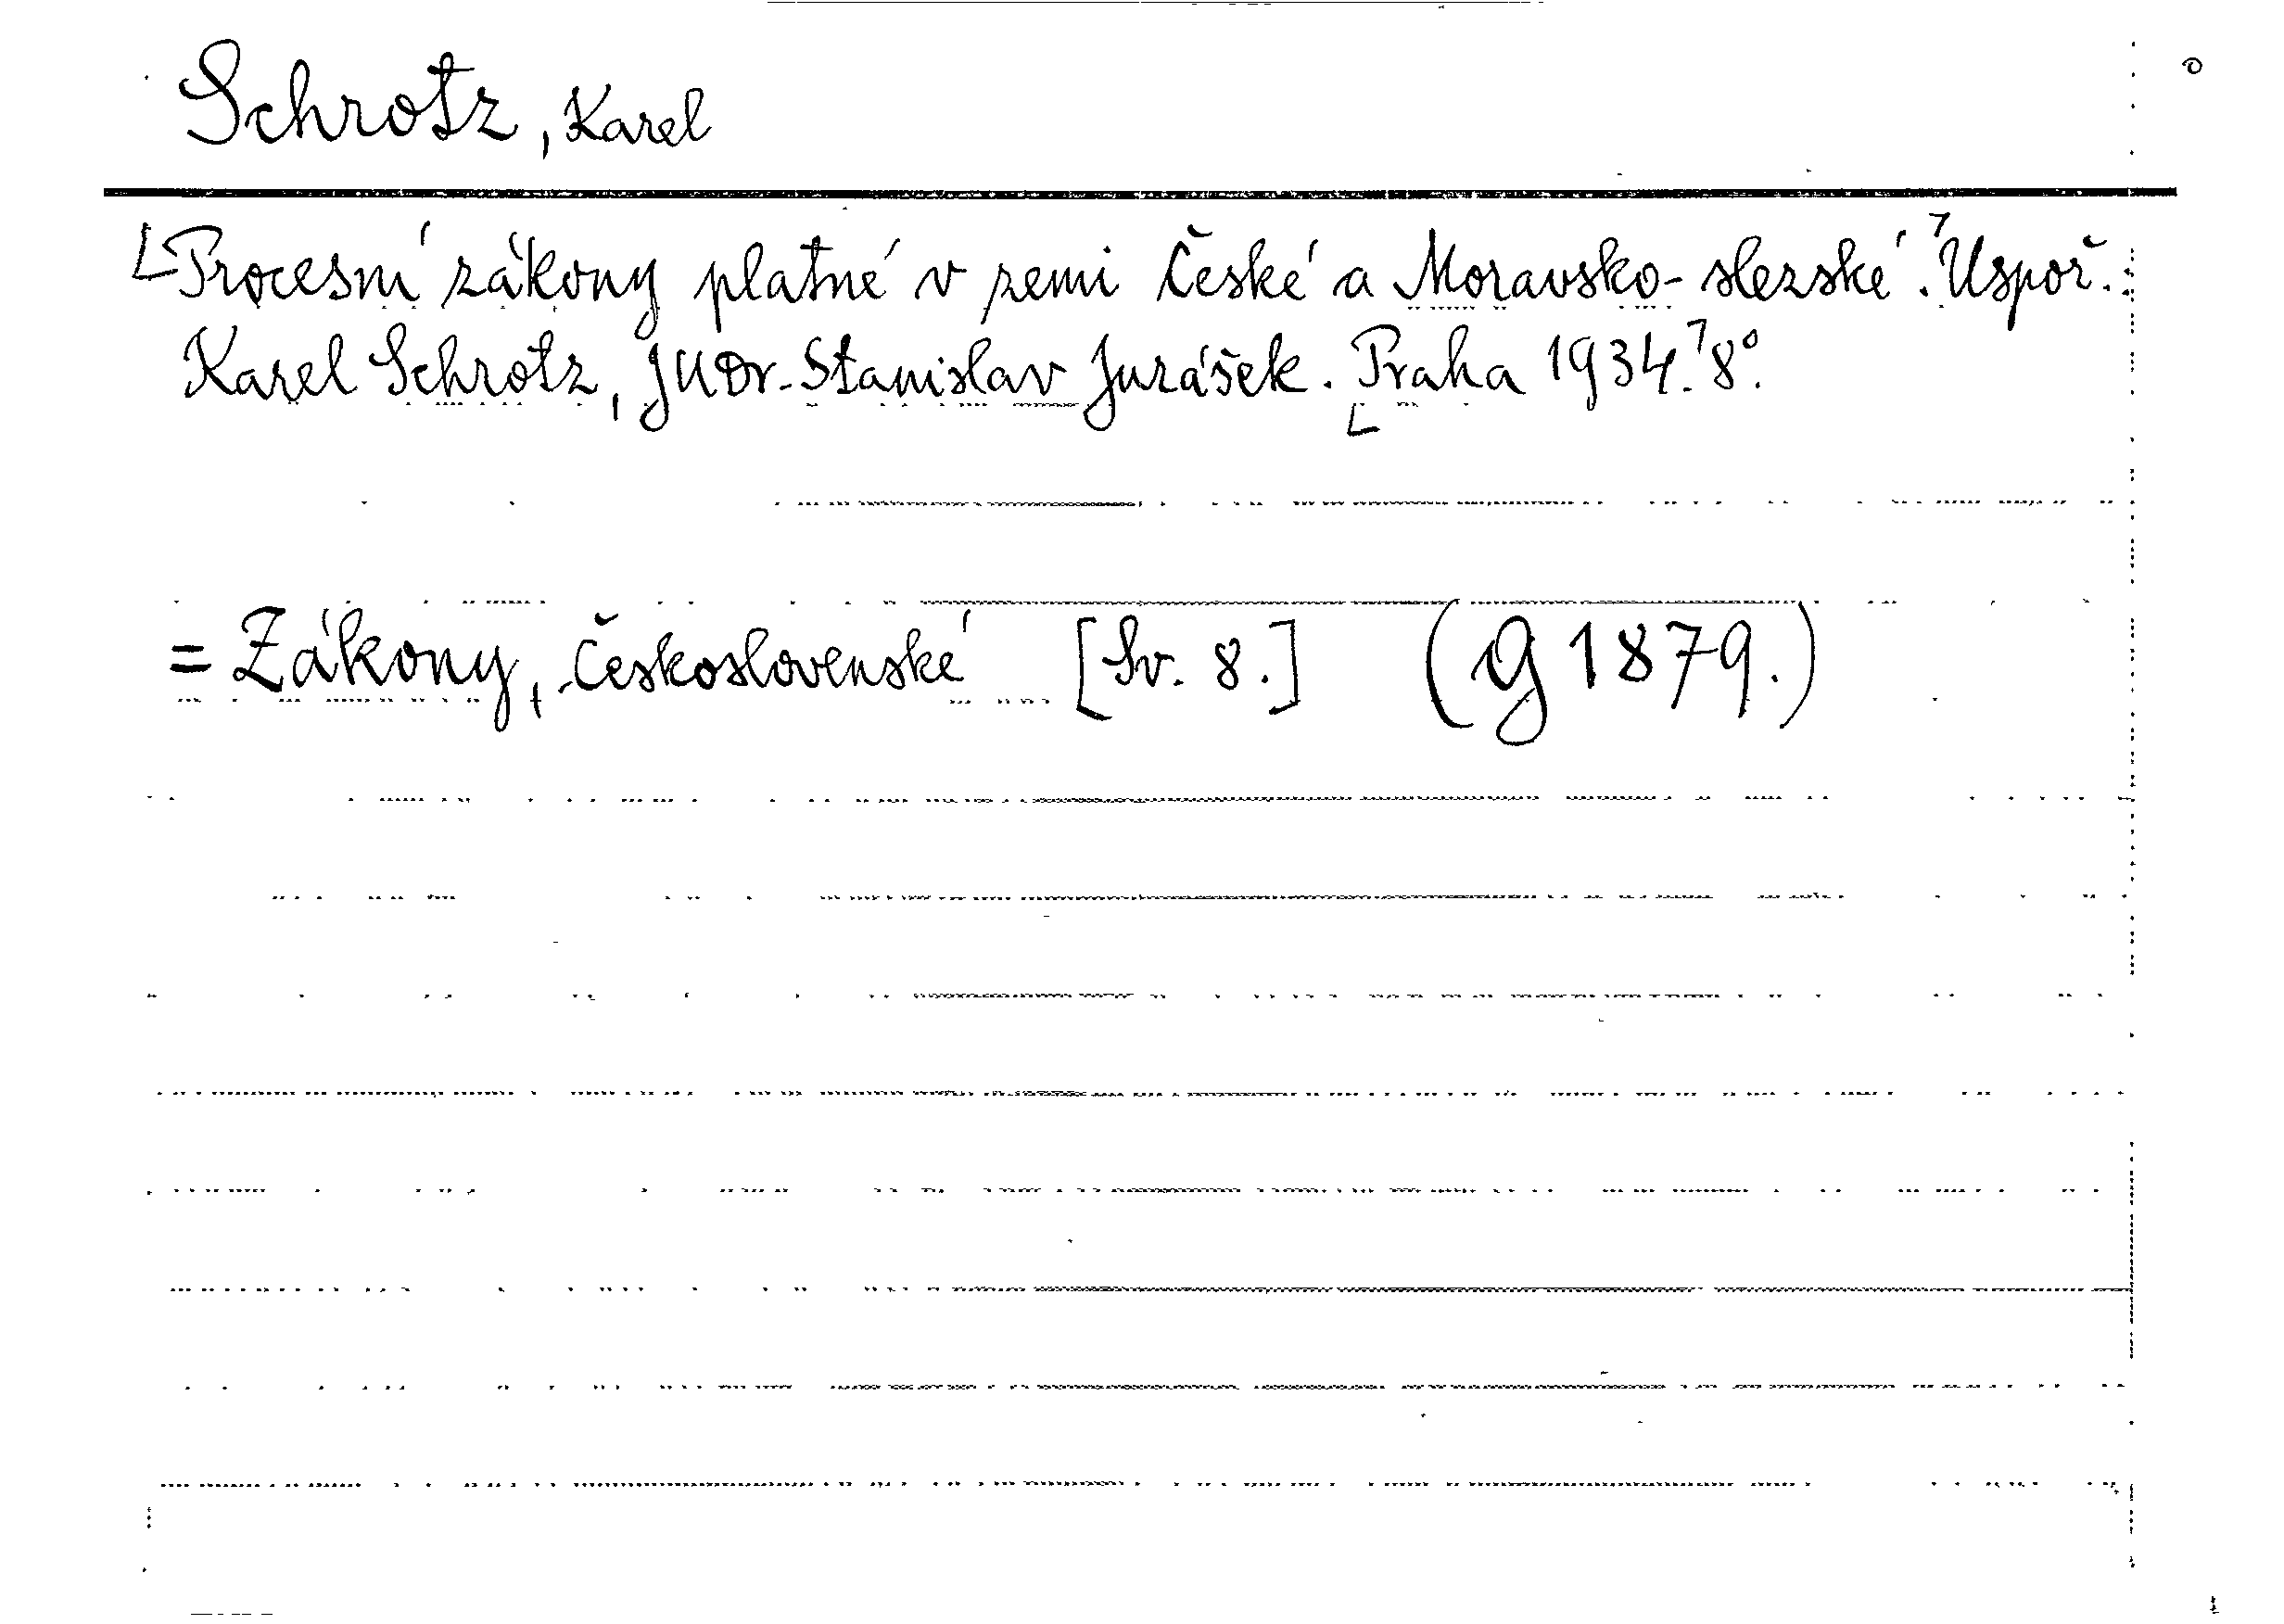 Schrotz, Karel
[Procesní zákony platné v zemi České a Moravsko-slezské.] Uspoř.:
Karel Schrotz, JUDr. Stanislav Jurášek. [Praha 1934.] 8°.
= Zákony, Československé [Sv. 8.] (g 1879.)